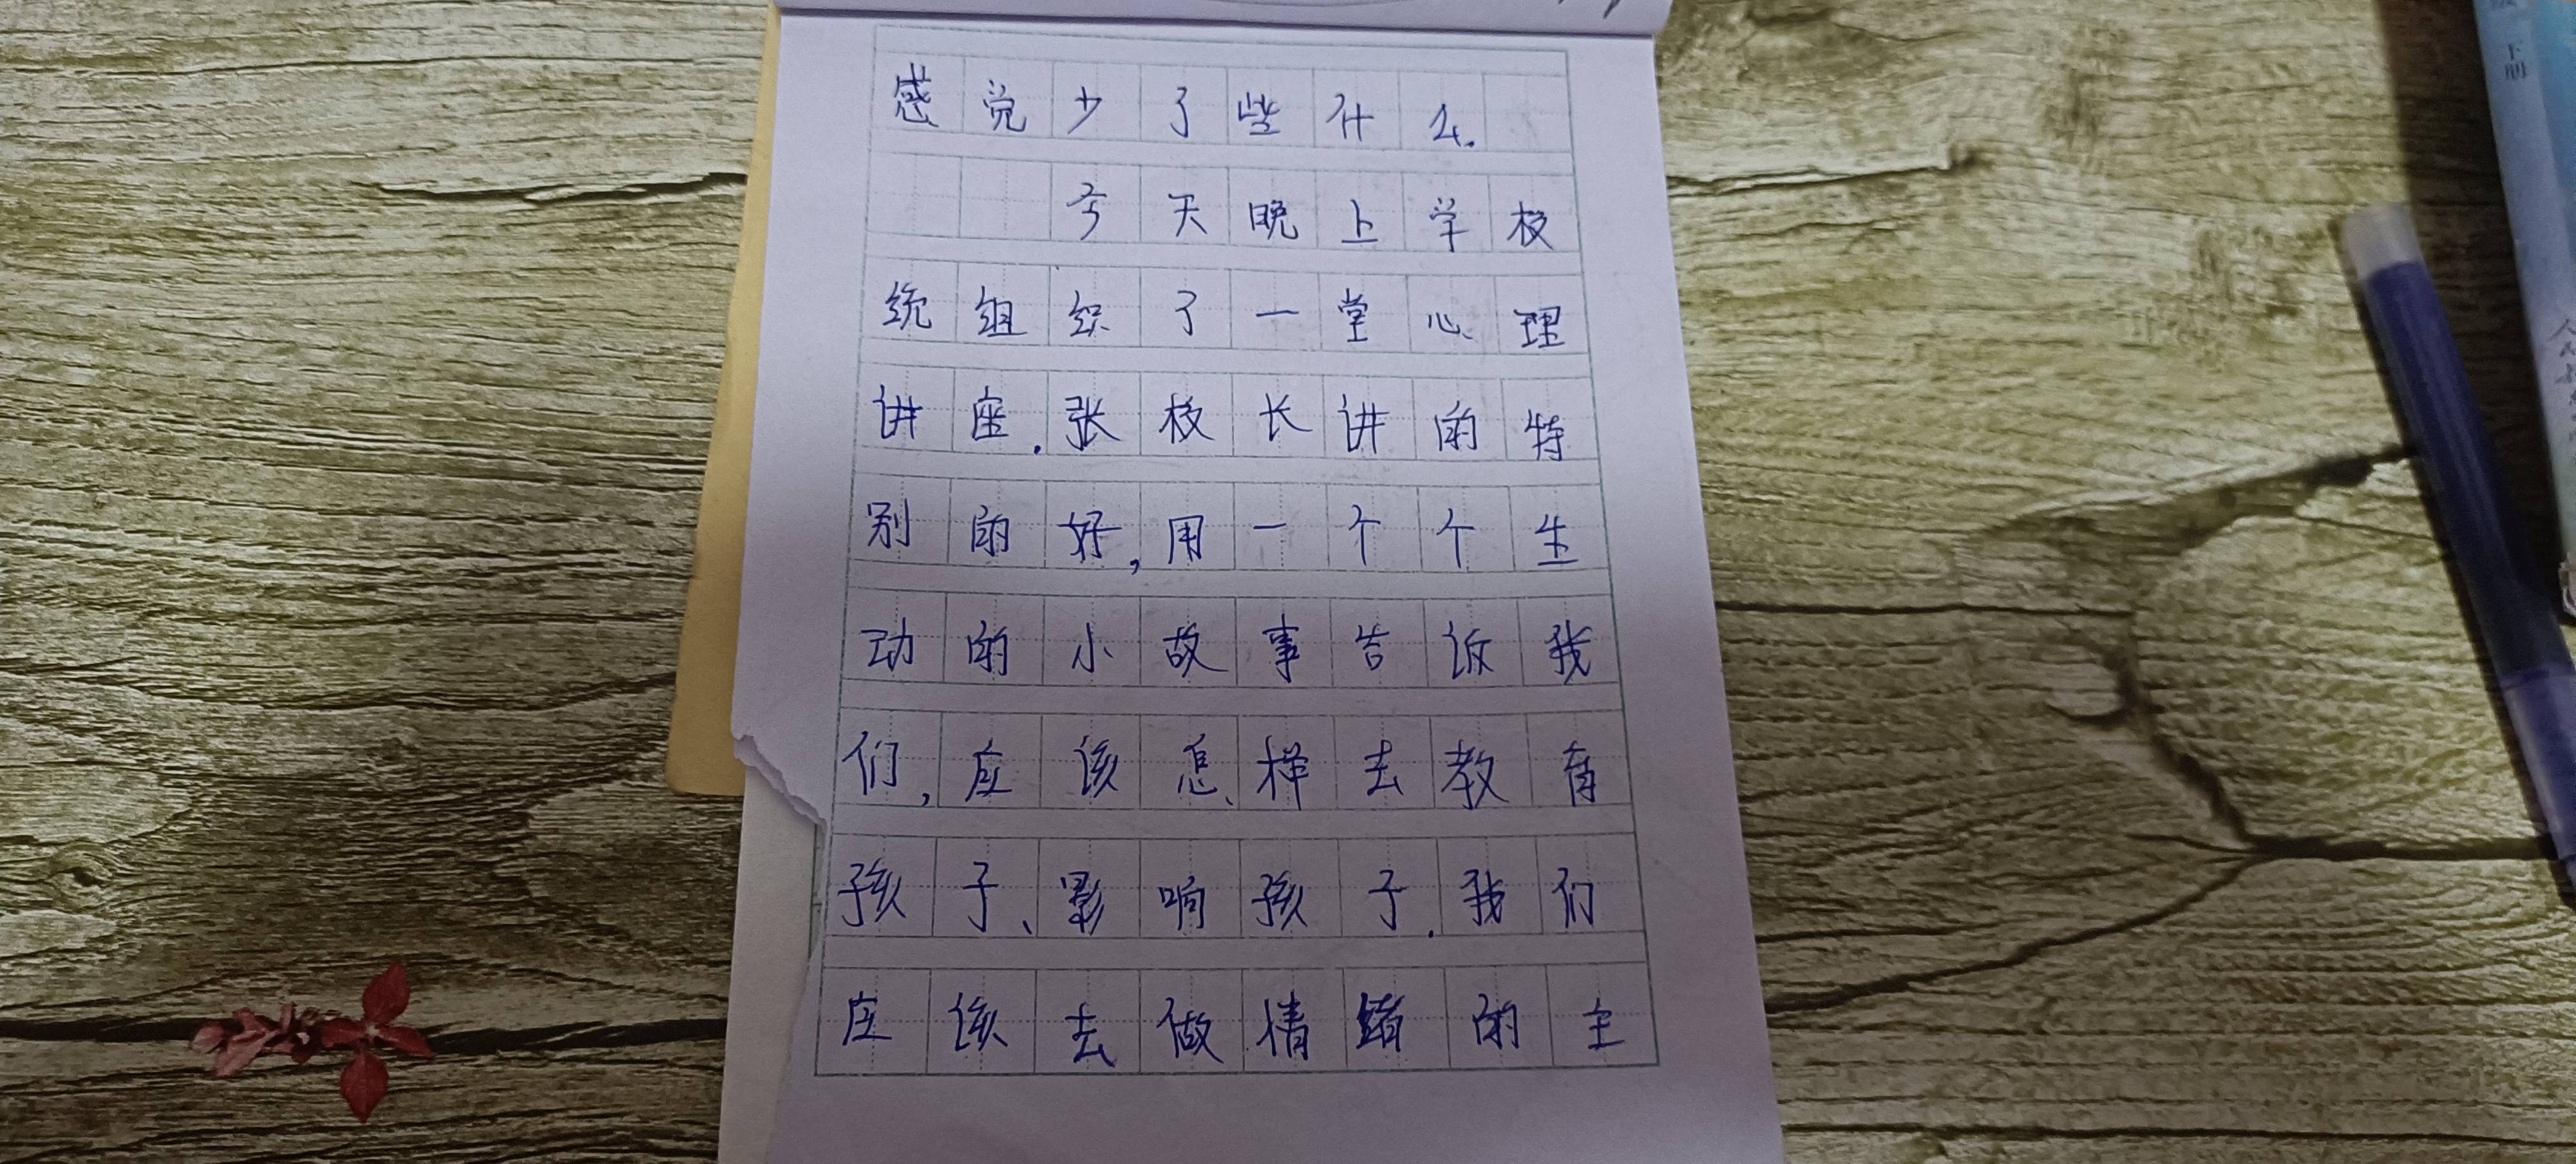 感觉少了些什么.
今天晚上学校
统组织了一堂心理
讲座.张校长讲的特
别的好,用一个个生
动的小故事告诉我
们,应该怎样去教育
孩子、影响孩子.我们
应该去做情绪的主
下册